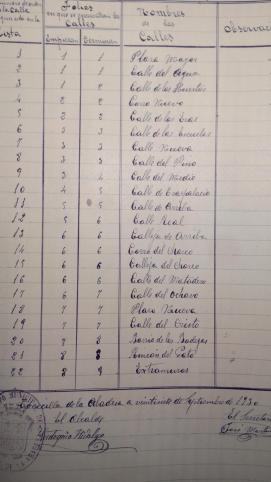 Folios
Nombres
de las
Calles
Observac
Calles
Lista
Empiezan Terminan
1 1 1 Plaza Mayor
2 1 1 Calle del Agua
3 1 2 Calle de las Huertas
4 2 2 Coso Nuevo
5 2 2 Calle de las Eras
6 3 3 Calle de las Escuelas
7 3 3 Calle Nueva
8 3 3 Calle del Pino
9 3 4 Calle del Medio
10 4 5 Calle de
11 5 5 Calle de Arriba
12 5 6 Calle Real
13 6 6 Calleja de Arriba
14 6 6 Corro del
15 6 6 Calleja del
16 6 6 Calle del Matadero
17 6 7 Calle del Ochavo
18 7 7 Plaza Nueva
19 7 7 Calle del Cristo
20 7 8 de las Bodegas
21 8 8 Rincón del
22 8 9 Extramuros
de la Abadesa a veintinueve de Septiembre de 1930
El Alcalde
El Secretario
Hidalgo